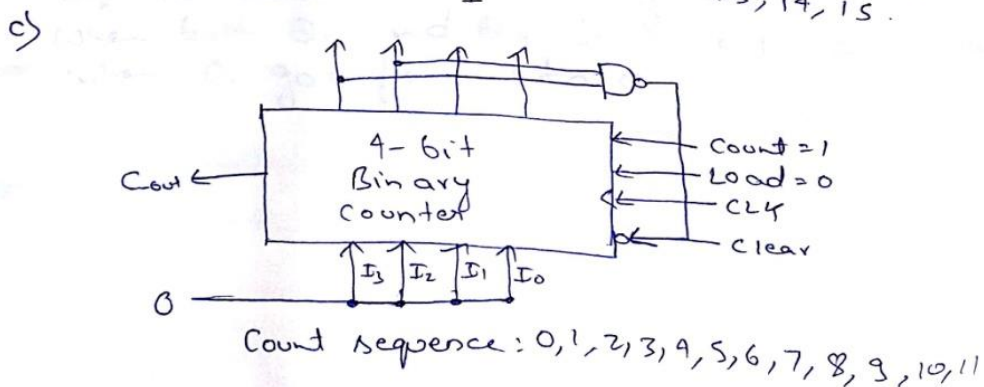 14, 15.
c)
4-bit
Binary
counter
Cout
Count = 1
Load = 0
CLK
Clear
I3 I2 I1 I0
0
Count sequence: 0,1,2,3,4,5,6,7,8,9,10,11